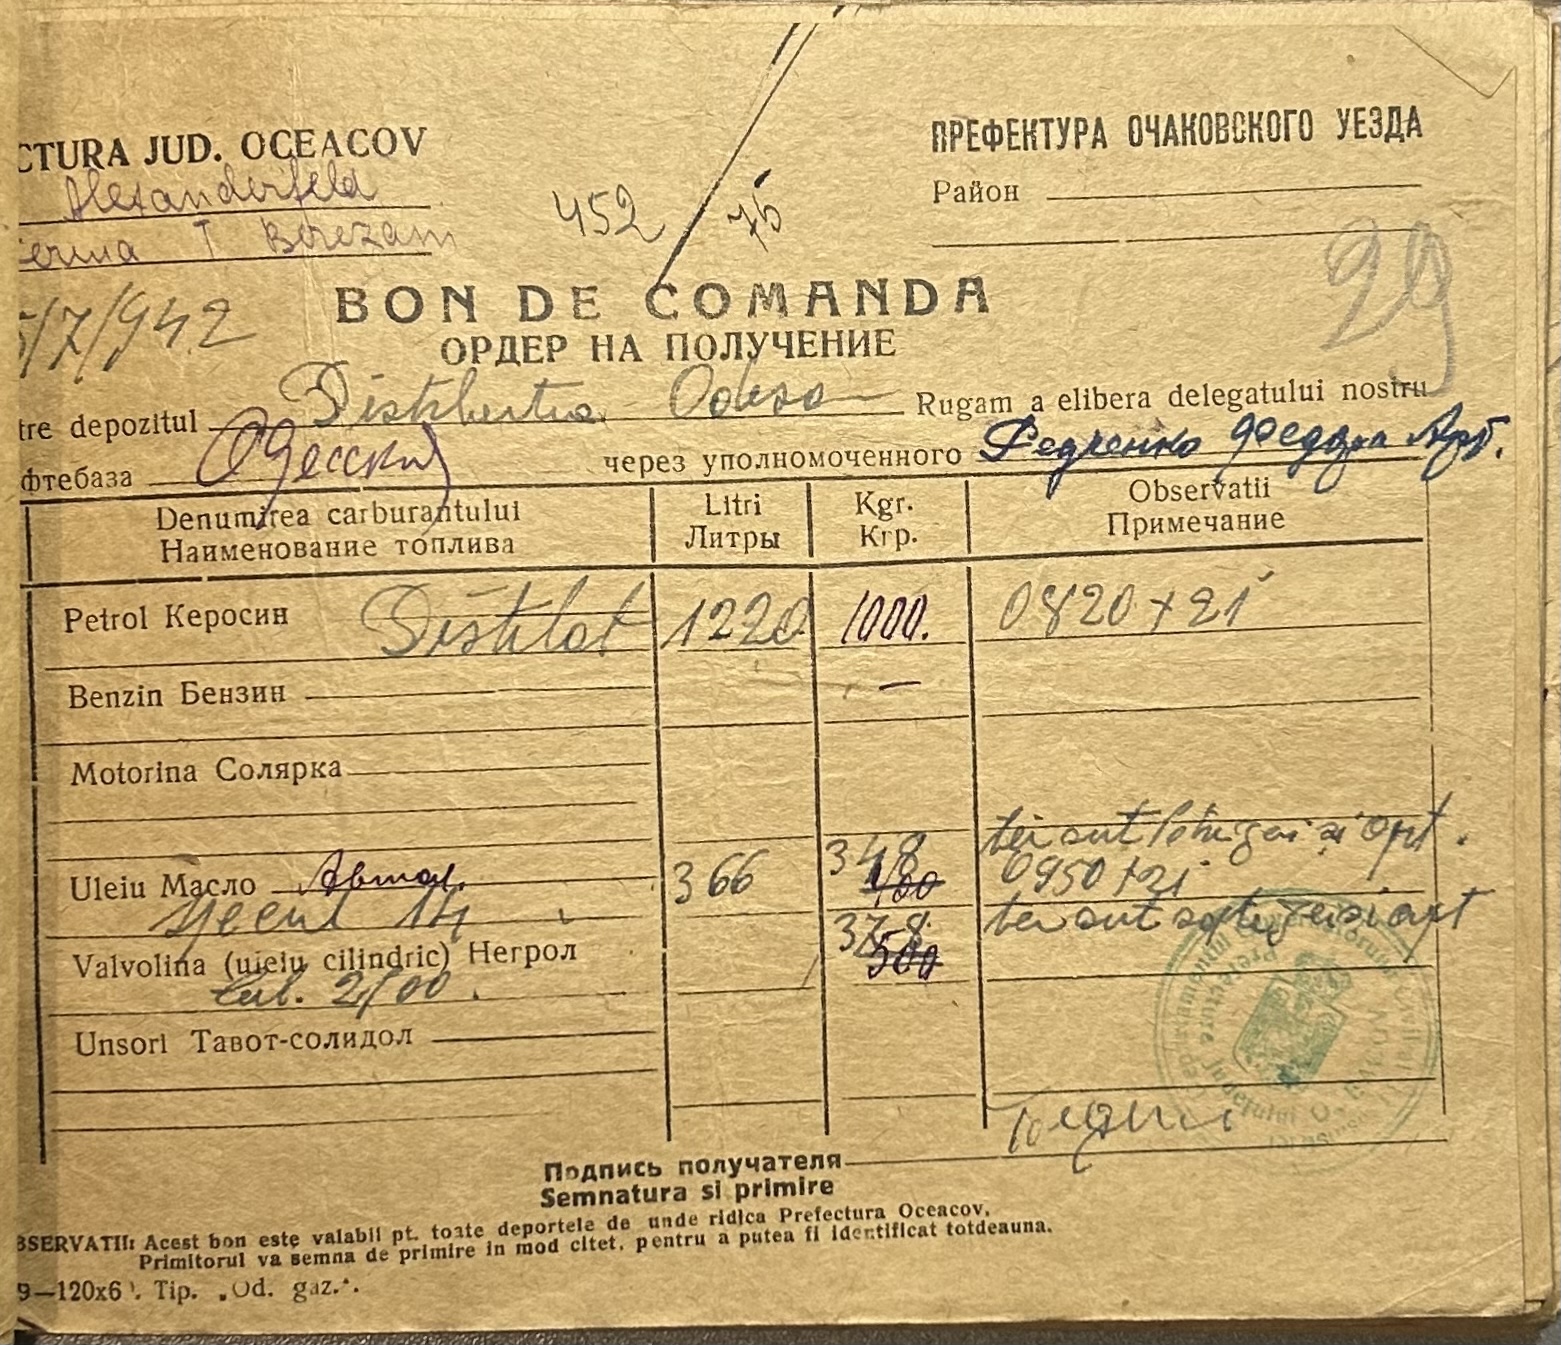 CTURA JUD. OCEACOV
ПРЕФЕКТУРА ОЧАКОВСКОГО УЕЗДА
Alexanderfeld
Район
452
Berezani
29
/7/942
BON DE COMANDA
ОРДЕР НА ПОЛУЧЕНИЕ
tre depozitul Odesa Rugam a elibera delegatului nostru
фтебаза Одесский через уполномоченного Федченко Федора
Denumirea carburantului Litri Kgr. Observatii
Наименование топлива Литры Кгр. Примечание
Petrol Керосин Distilat 1220 1000. 0820 + 21
Benzin Бензин —
Motorina Солярка
348
Uleiu Масло Автол. 366 400 0950 + 21
378
Valvolina (uleiu cilindric) Негрол 500
Unsori Тавот-солидол
Подпись получателя
Semnatura si primire
BSERVATII: Acest bon este valabil pt. toate deportele de unde ridica Prefectura Oceacov.
Primitorul va semna de primire in mod citet, pentru a putea fi identificat totdeauna.
9—120x6 Tip. „Od. gaz.".